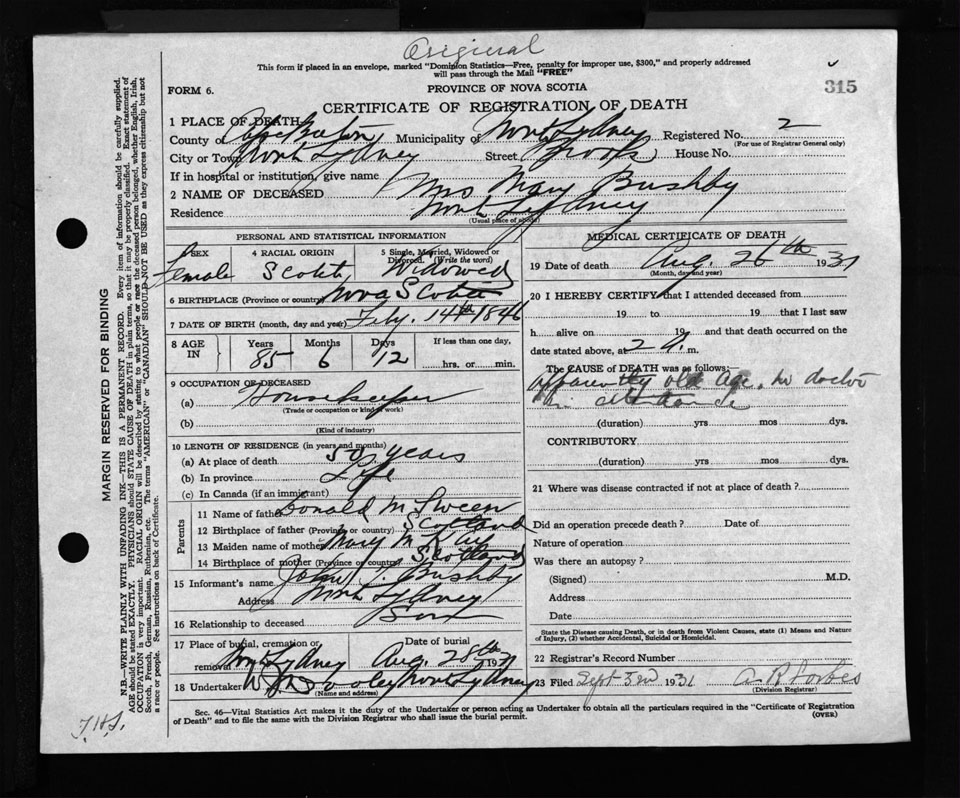 Original
This form if placed in an envelope, marked "Dominion Statistics—Free, penalty for improper use, $300," and properly addressed
will pass through the Mail "FREE"
315
FORM 6.
PROVINCE OF NOVA SCOTIA
CERTIFICATE OF REGISTRATION OF DEATH
1 PLACE OF DEATH
County of Cape Breton Municipality of North Sydney Registered No. 2
(For use of Registrar General only)
City or Town North Sydney Street Brook House No.
If in hospital or institution, give name
2 NAME OF DECEASED Mrs Mary Bushby
Residence North Sydney
(Usual place of abode)
PERSONAL AND STATISTICAL INFORMATION
3 SEX
Female
4 RACIAL ORIGIN
Scotch
5 Single, Married, Widowed or Divorced. (Write the word)
Widowed
6 BIRTHPLACE (Province or country) Nova Scotia
7 DATE OF BIRTH (month, day and year) Feby. 14th 1846
8 AGE IN
Years 85
Months 6
Days 12
If less than one day,
hrs. or min.
9 OCCUPATION OF DECEASED
(a) Housekeeper
(Trade or occupation or kind of work)
(b)
(Kind of industry)
10 LENGTH OF RESIDENCE (in years and months)
(a) At place of death 50 years
(b) In province Life
(c) In Canada (if an immigrant)
Parents
11 Name of father Donald McSween
12 Birthplace of father (Province or country) Scotland
13 Maiden name of mother Mary McKay
14 Birthplace of mother (Province or country) Scotland
15 Informant's name John Bushby
Address North Sydney
16 Relationship to deceased Son
17 Place of burial, cremation or removal North Sydney
Date of burial
Aug. 28th 1931
18 Undertaker Dooley North Sydney
(Name and address)
MEDICAL CERTIFICATE OF DEATH
19 Date of death Aug. 26th 1931
(Month, day and year)
20 I HEREBY CERTIFY that I attended deceased from
19 to 19 that I last saw
h alive on 19 and that death occurred on
date stated above, at 2 A. m.
The CAUSE of DEATH was as follows:—
apparently old age, no doctor
in attendance
(duration) yrs mos dys.
CONTRIBUTORY
(duration) yrs mos dys.
21 Where was disease contracted if not at place of death?
Did an operation precede death? Date of
Nature of operation
Was there an autopsy?
(Signed) M.D.
Address
Date
State the Disease causing Death, or in death from Violent Causes, state (1) Means and Nature
of Injury, (2) whether Accidental, Suicidal or Homicidal.
22 Registrar's Record Number
23 Filed Sept 3rd 1931 A R Forbes
(Division Registrar)
Sec. 46—Vital Statistics Act makes it the duty of the Undertaker or person acting as Undertaker to obtain all the particulars required in the "Certificate of Registration
of Death" and to file the same with the Division Registrar who shall issue the burial permit.
(OVER)
MARGIN RESERVED FOR BINDING
N.B.—WRITE PLAINLY WITH UNFADING INK—THIS IS A PERMANENT RECORD. Every item of information should be carefully supplied.
AGE should be stated EXACTLY. PHYSICIANS should STATE CAUSE OF DEATH in plain terms, so that it may be properly classified. Exact statement of
OCCUPATION is very important. RACIAL ORIGIN will be described by stating to what people or race the deceased person belonged, whether English, Irish,
Scotch, French, German, Russian, Ruthenian, etc. The terms "AMERICAN" or "CANADIAN" SHOULD NOT BE USED as they express citizenship but not
a race or people. See instructions on back of Certificate.